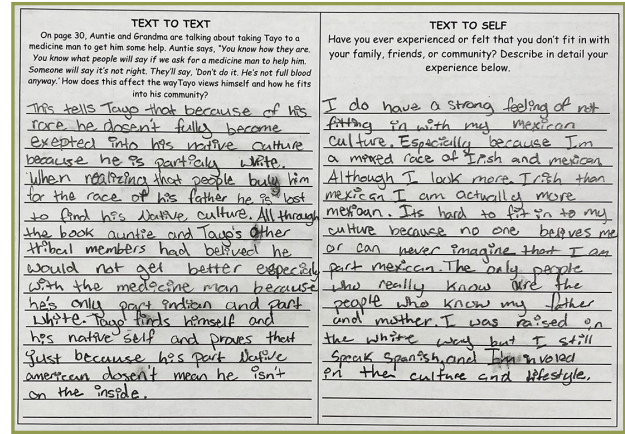 TEXT TO TEXT
On page 30, Auntie and Grandma are talking about taking Tayo to a
medicine man to get him some help. Auntie says, "You know how they are.
You know what people will say if we ask for a medicine man to help him.
Someone will say it's not right. They'll say, 'Don't do it. He's not full blood
anyway.' How does this affect the wayTayo views himself and how he fits
into his community?
This tells Tayo that because of his
race he dosen't fully become
exepted into his native culture
because he is particaly white.
When realizing that people buly him
for the race of his father he is lost
to find his Native culture. All through
the book auntie and Tayo's other
tribal members had belived he
would not get better especialy
with the medicine man because
he's only part indian and part
white. Tayo finds himself and
his native self and proves that
just because his part Native
american dosen't mean he isn't
on the inside.
TEXT TO SELF
Have you ever experienced or felt that you don't fit in with
your family, friends, or community? Describe in detail your
experience below.
I do have a strong feeling of not
fitting in with my mexican
culture. Especially because I'm
a mixed race of Irish and mexican
Although I look more Irish than
mexican I am actually more
mexican. Its hard to fit in to my
culture because no one believes me
or can never imagine that I am
part mexican. The only people
who really know are the
people who know my father
and mother. I was raised in
the white way but I still
speak spanish, and I'm involed
in the culture and lifestyle.